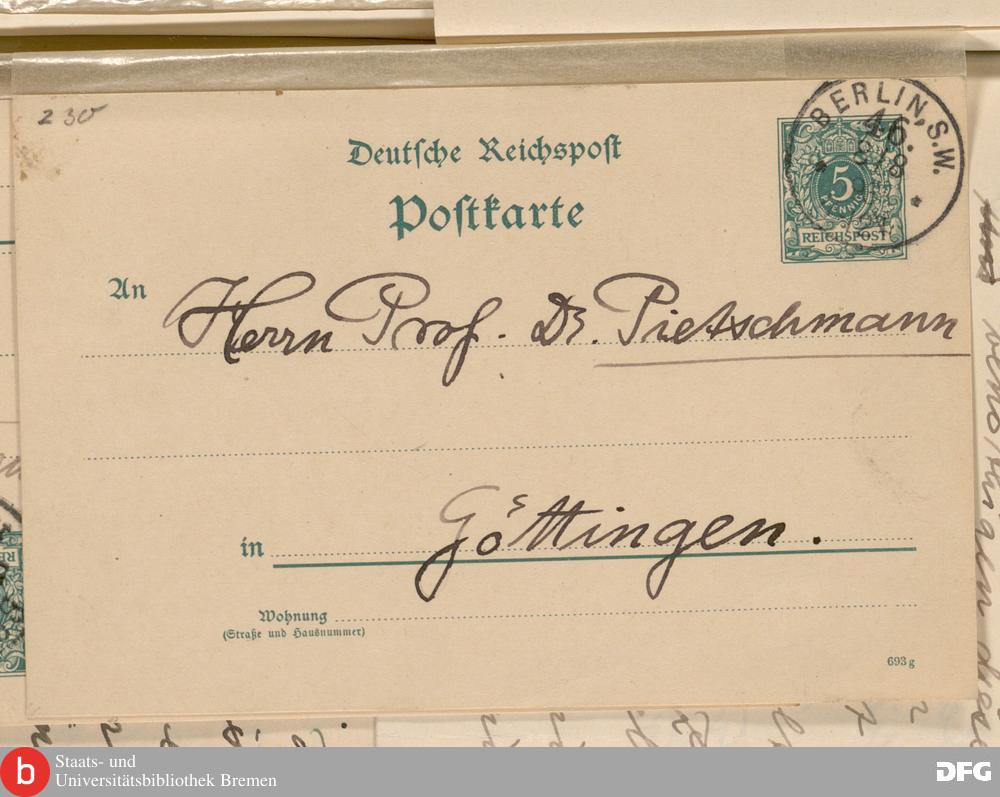 230
Deutsche Reichspost
Postkarte
BERLIN, S.W.
46.
5
PFENNIG
REICHSPOST
An Herrn Prof. Dr. Pietschmann
in Göttingen.
Wohnung
(Straße und Hausnummer)
693g
b Staats- und
Universitätsbibliothek Bremen
DFG